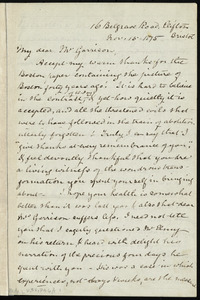 16 Belgrave Road, Clifton
Bristol
Nov. 15. 1875
My dear Mr. Garrison,
Accept my warm thanks for the
Boston paper containing the picture of
Boston forty years ago: it is hard to believe
in the contrast, & yet how quietly it is
accepted, and all the threatened evils that
were to have followed in the train of abolition
utterly forgotten! Truly I may say that I
"give thanks at every remembrance of you";
& feel devoutly thankful that you are
a living witness of the wondrous trans-
formation you spent yourself in bringing
about. I hope your health is somewhat
better than it was last year & also that dear
Mrs Garrison suffers less. I need not tell
you that I eagerly questioned Mr
on his return, & heard with delight his
narration of the precious four days he
spent with you - his was a case in which
experience, not always